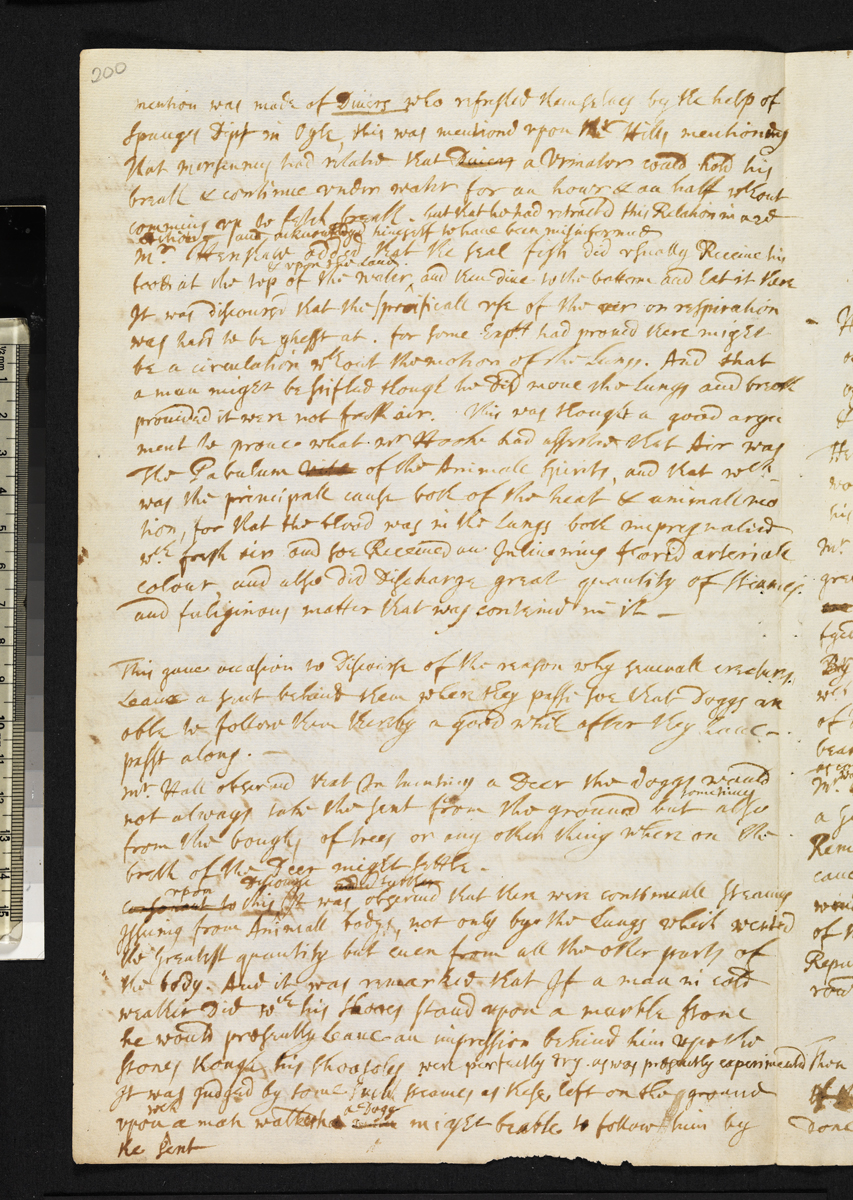 200
mention was made of Divers who refreshed themselves by the help of
spunges Dipt in Oyle, this was mentiond upon Mr Hills mentioning
that mersennus had related that Divers a Urinator could hold his
breath & continue under water for an hour & an half wthout
comming up to fetch breath. but that he had retracted this Relation in a 2d
edition and acknowledgd himself to have been misinformed
Mr Henshaw added that the seal fish did usually Receive his
& upon the land
food at the top of the water, and then dive to the bottom and Eat it there
It was discoursd that the specificall use of the air or respiration
was hard to be ghesst at. for some Expts had proved there might
be a circulation wthout the motion of the Lungs. And that
a man might be stifled though he did move the Lungs and breath
provided it were not fresh air. This was thought a good argu
ment to prove what mr Hooke had asserted that Air was
The Pabulum vitae of the Animall spirits, and that wch
was the principall cause both of the heat & animall mo
tion, for that the blood was in the Lungs both impregnated
wth fresh air and soe Received an Inlivening florid arteriall
colour, and also did Discharge great quantity of steames
and fuliginous matter that was contained in it
This gave occasion to Discourse of the reason why severall creatures
Leave a sent behind them where they passe soe that Doggs are
able to follow them thereby a good while after they have
passt along.
Mr. Hall observed that In hunting a Deer the doggs would
sometimes
not always take the sent from the ground but also
from the boughs of trees or any other thing where on the
breth of the Deer might settle.
upon Discourse
consonant to this It was observed that there were continuall steames
Issuing from Animall bodys, not only by the Lungs which vented
the greatest quantity but even from all the other parts of
the body. And it was remarked that If a man in cold
weather Did wth his shooes stand upon a marble stone
he would presently leave an impression behind him upo the
stones though his shoosoles were perfectly dry. as was presently experimented
It was judged by some such steames as these left on the ground
wch a Dogg
upon a man walked might be able to follow him by
the sent